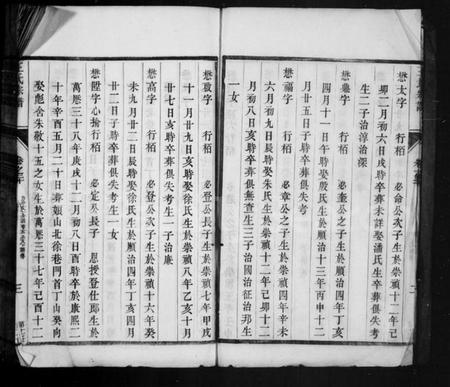 懋太字　行栢　必命公次子生於崇禎十二年己
卯二月初六日戌時卒葬未詳娶潘氏生卒葬俱失考
生二子治淳治深
懋彝字　行栢　必奎公之子生於順治四年丁亥
四月十一日時娶殷氏生於順治十三年丙申十二
月廿五日子時卒葬俱失考
懋福字　行栢　必章公之子生於崇禎四年辛未
六月初九日辰時娶徐氏生於崇禎十二年己卯十二
月初八日亥時卒葬俱無查生三子治國治征治邦生
一女
懋禎字　行栢　必登公長子生於崇禎七年甲戌
十一月廿九日亥時娶徐氏生於崇禎八年乙亥十月
廿七日亥時卒葬俱失考生一子治廉
懋高字　行栢　必登公次子生於崇禎十六年癸
未九月廿二日辰時娶徐氏生於順治四年丁亥四月
廿二日子時卒葬俱失考生一女
懋陞字心掄行栢　必定公長子　恩授登仕郎生於
萬厯三十八年庚戌十二月初八日酉時卒於康熙二
十年辛酉五月二十日葬姬山北徐巷門首丁山癸向
娶彪舍朱敬十五之女生於萬厯三十七年己酉十二
王氏宗譜
卷之
三